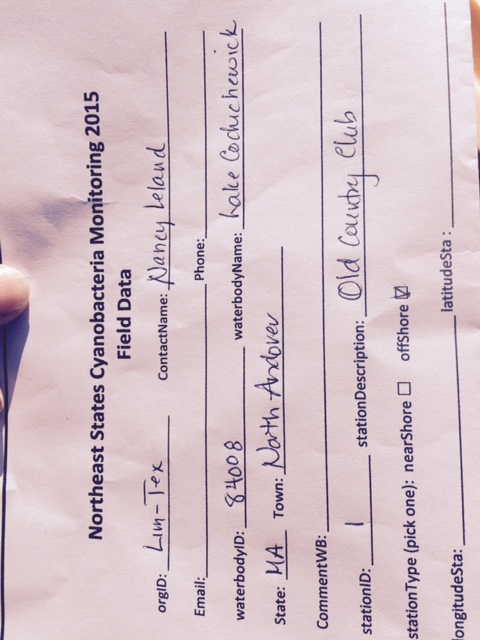 Northeast States Cyanobacteria Monitoring 2015
Field Data
orgID: Lim-Tex ContactName: Nancy Leland
Email: Phone:
waterbodyID: 84008 waterbodyName: Lake Cochichewick
State: MA Town: North Andover
CommentWB:
stationID: 1 stationDescription: Old Country Club
stationType (pick one): nearShore ☐ offShore ☑
longitudeSta: latitudeSta: